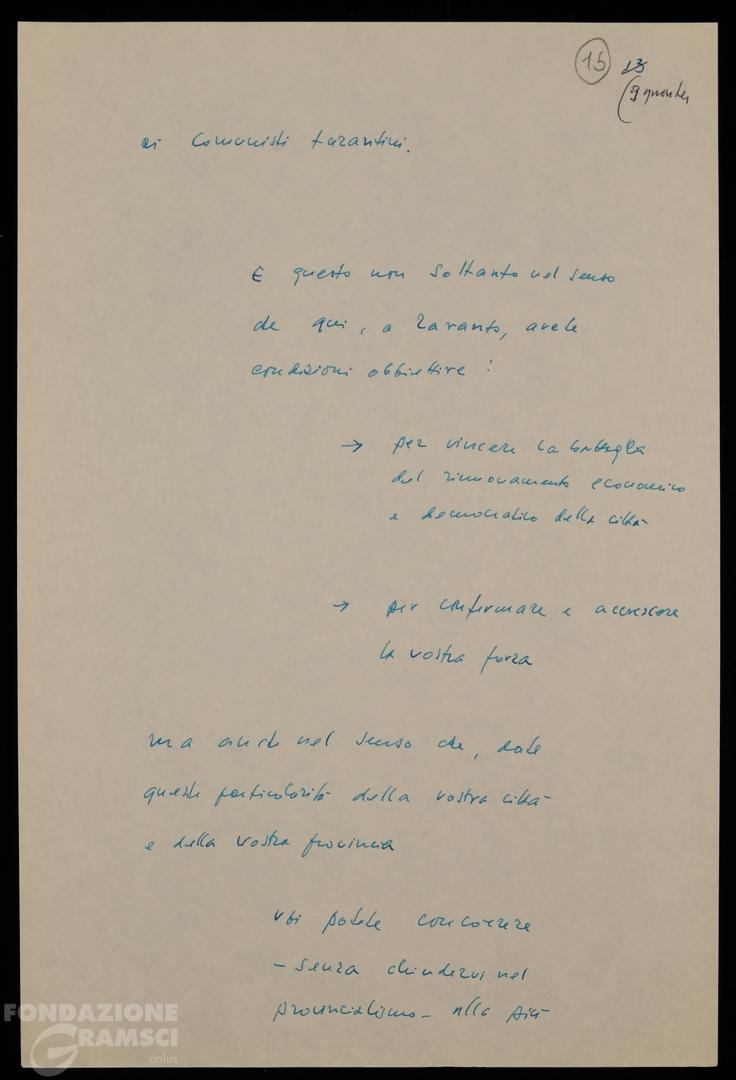 15
13
(9 quater
ai Comunisti tarantini.
E questo non soltanto nel senso
che qui, a Taranto, avete
condizioni obbiettive :
→ per vincere la battaglia
del rinnovamento economico
e democratico della città
→ per confermare e accrescere
la vostra forza
ma anche nel senso che, date
queste particolarità della vostra città
e della vostra provincia
voi potete concorrere
- senza chiudervi nel
provincialismo - alla più
FONDAZIONE
GRAMSCI
onlus